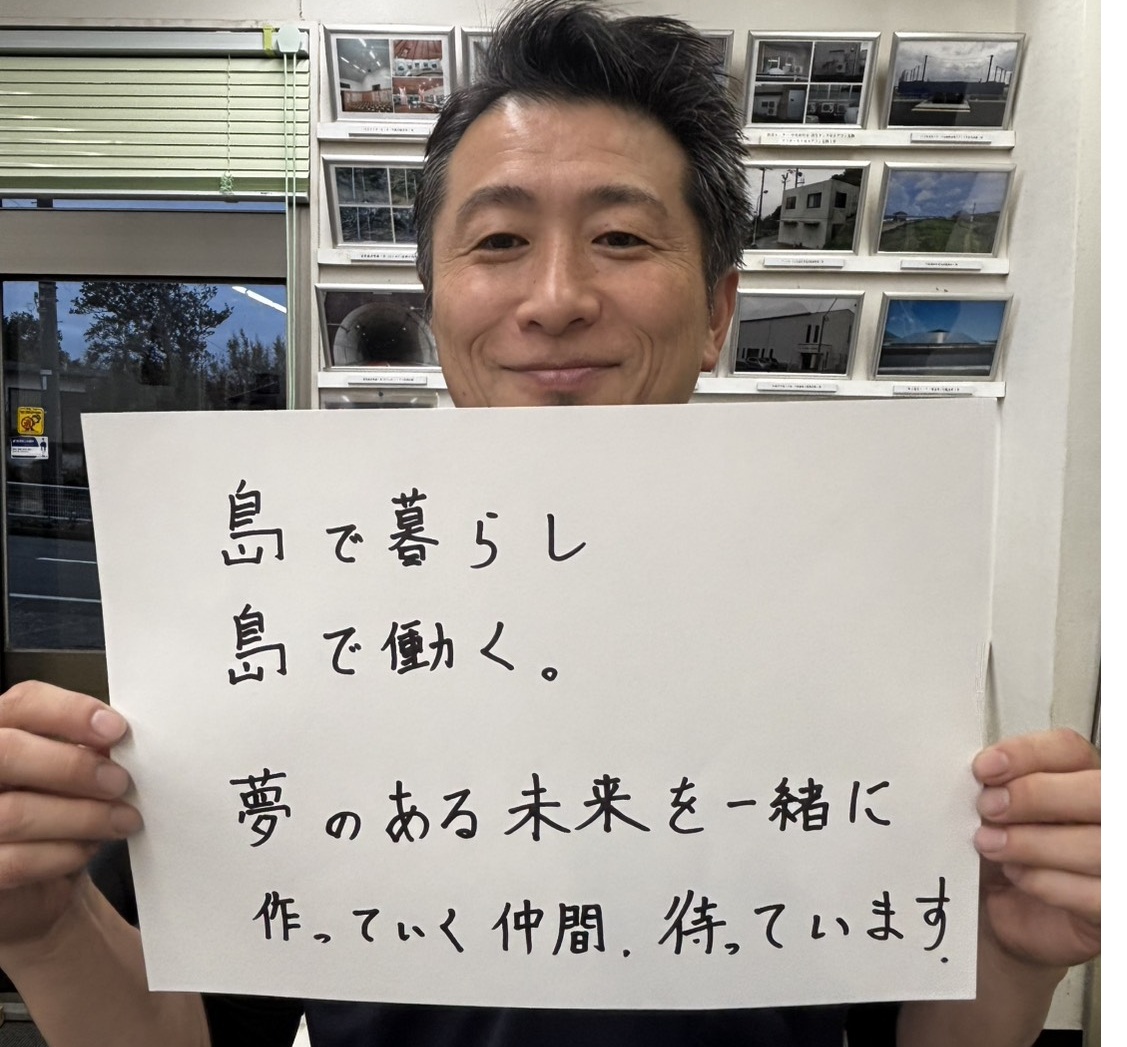 島で暮らし
島で働く。
夢のある未来を一緒に
作っていく仲間.待っています.